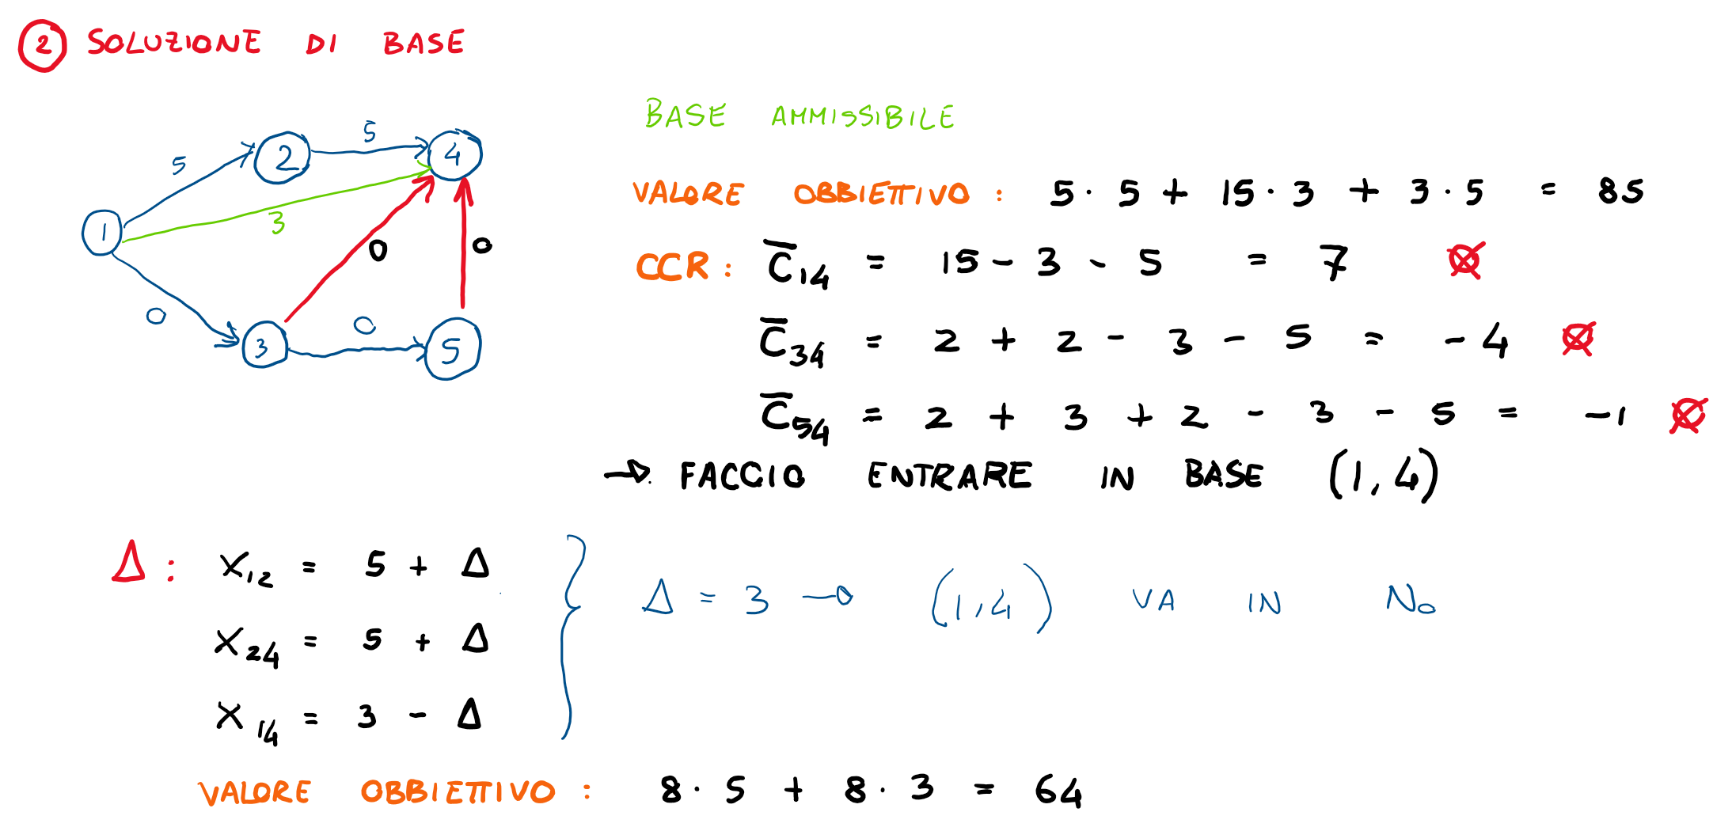 2 SOLUZIONE DI BASE
BASE AMMISSIBILE
5 2 5 4
1 3 0 0
0 3 0 5
VALORE OBBIETTIVO : 5 · 5 + 15 · 3 + 3 · 5 = 85
CCR : C̅14 = 15 - 3 - 5 = 7
C̅34 = 2 + 2 - 3 - 5 = - 4
C̅54 = 2 + 3 + 2 - 3 - 5 = -1
→ FACCIO ENTRARE IN BASE (1,4)
Δ : X12 = 5 + Δ
X24 = 5 + Δ
X14 = 3 - Δ
Δ = 3 → (1,4) VA IN N0
VALORE OBBIETTIVO : 8 · 5 + 8 · 3 = 64